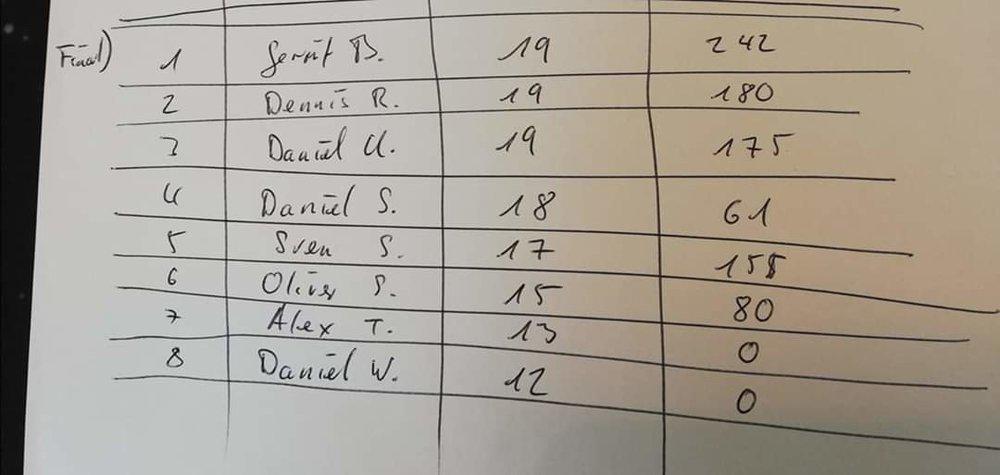 Final) 1 Gerrit B. 19 242
2 Dennis R. 19 180
3 Daniel U. 19 175
4 Daniel S. 18 61
5 Sven S. 17 158
6 Oliver S. 15 80
7 Alex T. 13 0
8 Daniel W. 12 0